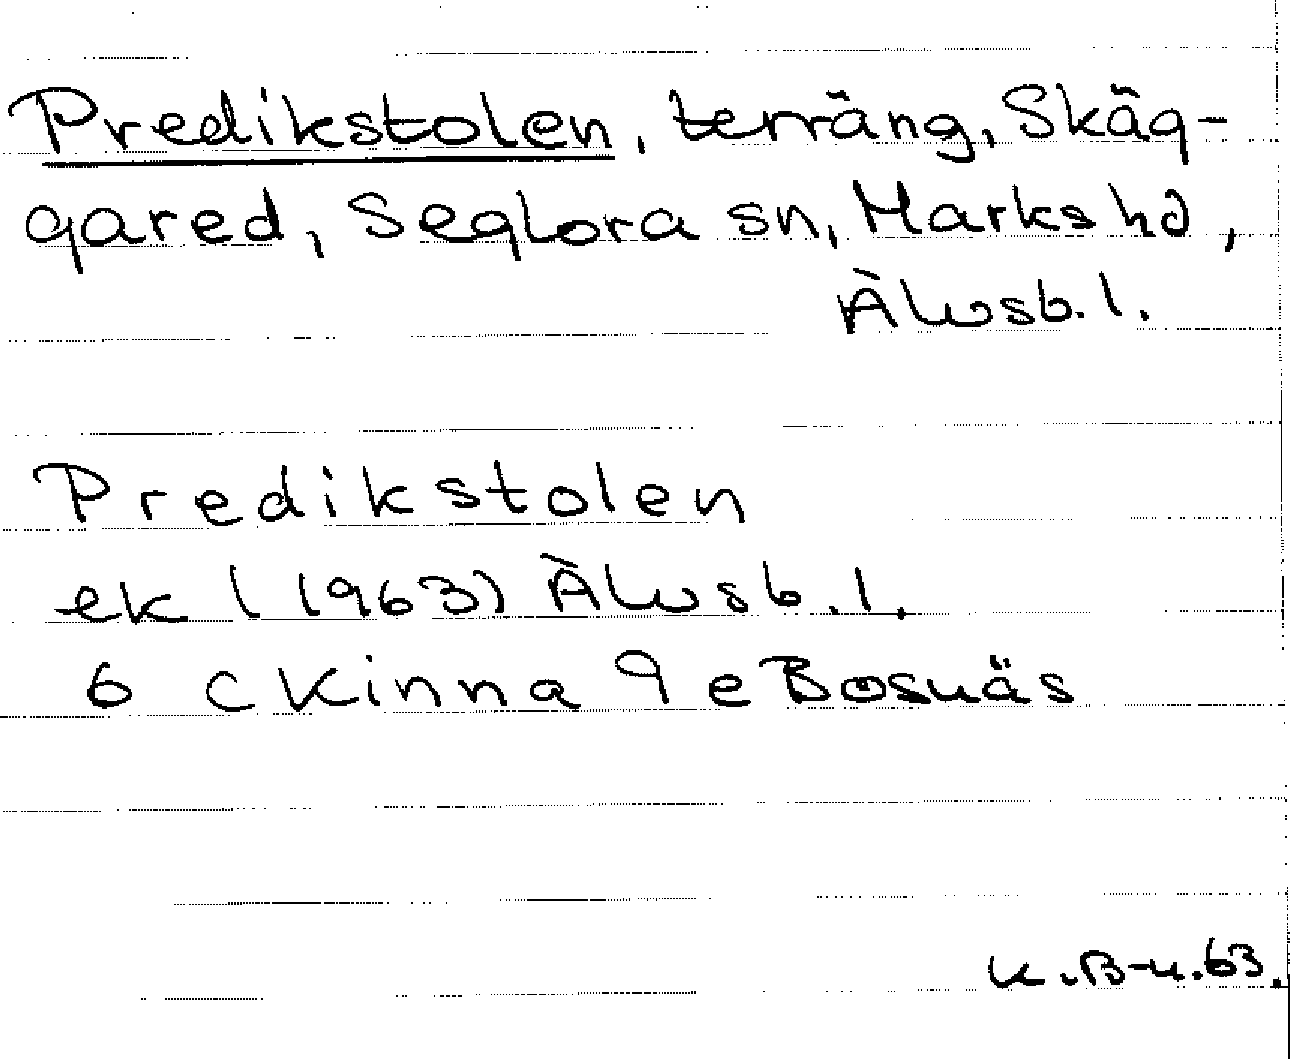 Predikstolen, terräng, Skäg-
gared, Seglora sn, Marks hd,
Älvsb. l.
Predikstolen
ek (1963) Älvsb. l.
6 c Kinna 9 e Bosnäs
K. B-n. 63.